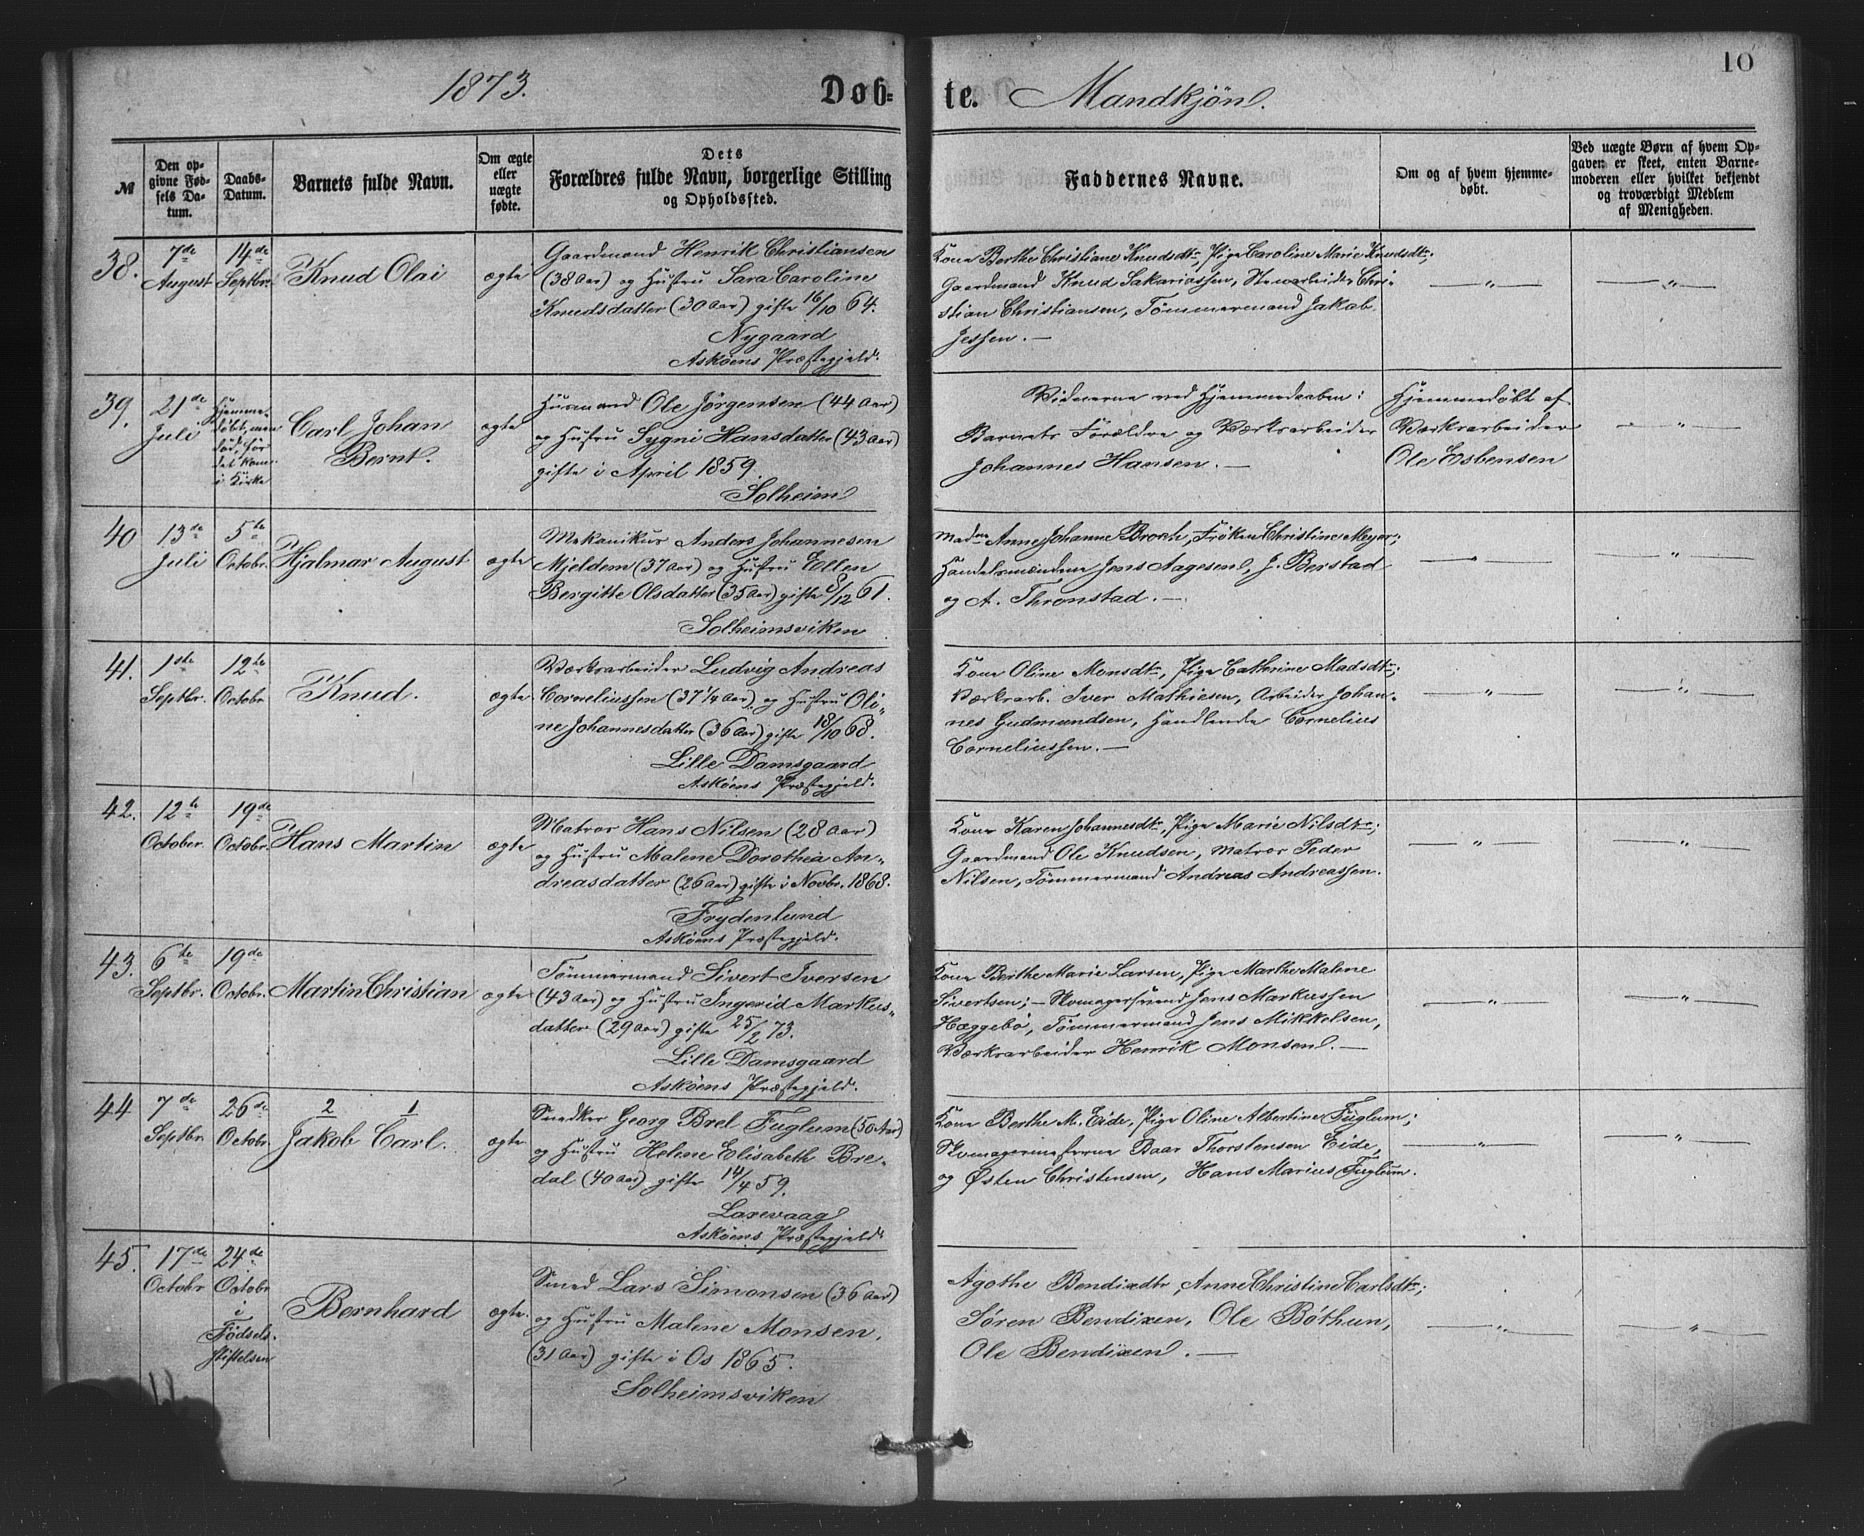 10
1873. Døb-te. Mandkjøn.
№
Den opgivne Fødsels Datum.
Daabs-Datum.
Barnets fulde Navn.
Om ægte eller uægte fødte.
Dets Forældres fulde Navn, borgerlige Stilling og Opholdssted.
Faddernes Navne.
Om og af hvem hjemmedøbt.
Ved uægte Børn af hvem Opgaven er skeet, enten Barnemoderen eller hvilket bekjendt og troværdigt Medlem af Menigheden.
38.
7de August
14de Septbr.
Knud Olai
ægte
Gaardmand Henrik Christiansen
(38 Aar) og Hustru Sara Caroline
Knudsdatter (30 Aar) gifte 16/10 64.
Nygaard
Askøens Præstegjeld.
Kone Berthe Christiane Knudsdtr, Pige Caroline Marie Knudsdtr;
Gaardmand Knud Sakariassen, Stenarbeider Chri-
stian Christiansen, Tømmermand Jakob
Jessen. —
— " —
— " —
39.
21de Juli
Hjemme-
døbt, men
død, før
det kom
i Kirke
Carl Johan
Bernt.
ægte
Husmand Ole Jörgensen (44 Aar)
og Hustru Sygni Hansdatter (43 Aar)
gifte i April 1859.
Solheim
Vidnerne ved Hjemmedaaben:
Barnets Forældre og Værksarbeider
Johannes Hansen. —
Hjemmedøbt af
Værksarbeider
Ole Esbensen
— " —
40
13de Juli
5te Octobr.
Hjalmar August
ægte
Mekanikus Anders Johannesen
Mjeldem (37 Aar) og Hustru Ellen
Bergitte Olsdatter (35 Aar) gifte 8/12 61.
Solheimsviken
Madme Anne Johanne Broch, Frøken Christine Meyer;
Handelsmændene Jens Aagesen, J. Berstad
og A. Thronstad. —
— " —
— " —
41.
1ste Septbr.
12te Octobr
Knud.
ægte
Værksarbeider Ludvig Andreas
Corneliussen (37 1/4 Aar) og Hustru Oli-
ne Johannesdatter (36 Aar) gifte 18/10 68.
Lille Damsgaard
Askøens Præstegjeld.
Kone Oline Monsdtr, Pige Cathrine Madsdtr;
Værksarb. Iver Mathiesen, Arbeider Johan-
nes Gudmundsen, Handlende Cornelius
Corneliussen. —
— " —
— " —
42.
12te October.
19de Octobr.
Hans Martin
ægte
Matros Hans Nilsen (28 Aar)
og Hustru Malene Dorothea An-
dreasdatter (26 Aar) gifte i Novbr. 1868.
Frydenlund
Askøens Præstegjeld.
Kone Karen Johannesdtr, Pige Marie Nilsdtr;
Gaardmand Ole Knudsen, Matros Peder
Nilsen, Tømmermand Andreas Andreassen.
— " —
— " —
43.
6te Septbr.
19de Octobr.
Martin Christian
ægte
Tømmermand Sivert Iversen
(43 Aar) og Hustru Ingerid Markus-
datter (29 Aar) gifte 25/2 73.
Lille Damsgaard
Askøens Præstegjeld.
Kone Berthe Marie Larsen, Pige Marthe Malene
Sivertsen; — Skomagersvend Jens Markussen
Hæggebø, Tømmermand Jens Mikkelsen,
Værksarbeider Henrik Monsen. —
— " —
— " —
44
7de Septbr.
26de Octobr.
2 1
Jakob Carl.
ægte
Snedker Georg Brel Fuglum (50 Aar)
og Hustru Helene Elisabeth Bre-
dal (40 Aar) gifte 14/4 59.
Laxevaag
Askøens Præstegjeld.
Kone Berthe M. Eide, Pige Oline Albertine Fuglum;
Skomagermestrene Baar Thorstensen Eide,
og Østen Christensen, Hans Marius Fuglum.
— " —
— " —
45.
17de Octobr
24de Octobr
i
Fødsels-
stiftelsen
Bernhard
ægte.
Smed Lars Simonsen (36 Aar)
og Hustru Malene Monsen,
(31 Aar) gifte i Os 1865.
Solheimsviken
Agothe Bendixdtr, Anne Christine Carlsdtr;
Søren Bendixen, Ole Bøthun,
Ole Bendixen. —
— " —
— " —